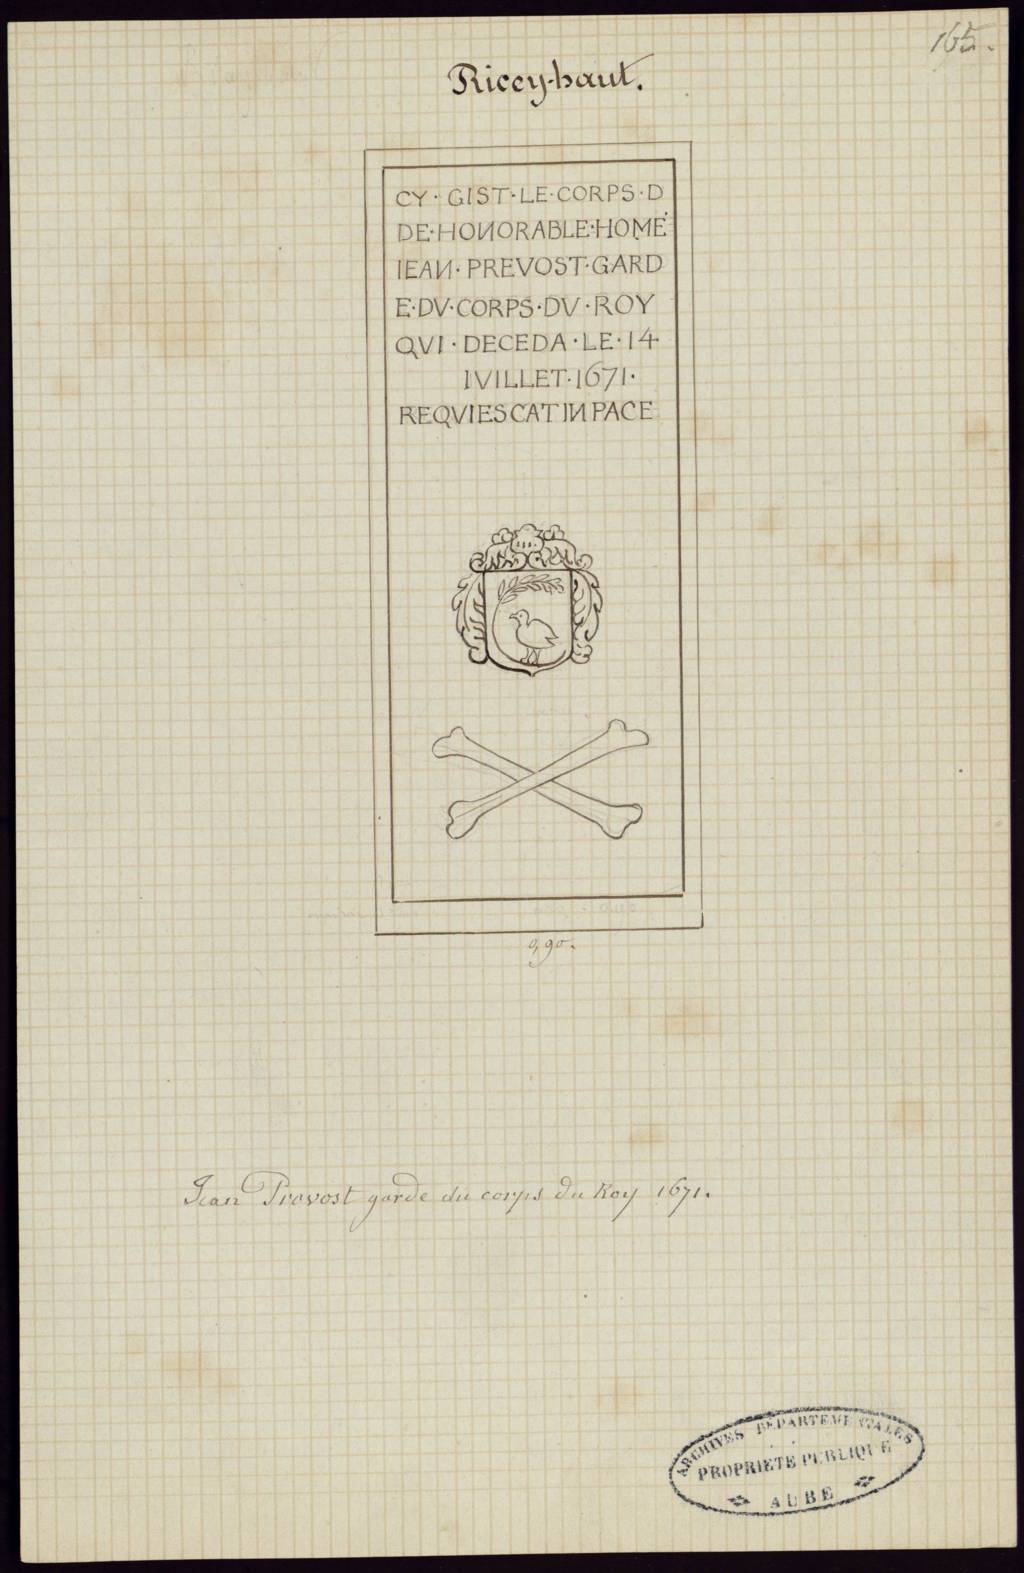 165.
Ricey-haut.
CY · GIST · LE · CORPS · D
DE · HONORABLE · HOME
IEAN · PREVOST · GARD
E · DV · CORPS · DV · ROY
QVI · DECEDA · LE · 14
IVILLET · 1671 ·
REQVIESCAT IN PACE
0,90.
Jean Prevost garde du corps du Roy 1671.
ARCHIVES DÉPARTEMENTALES
PROPRIÉTÉ PUBLIQUE
AUBE